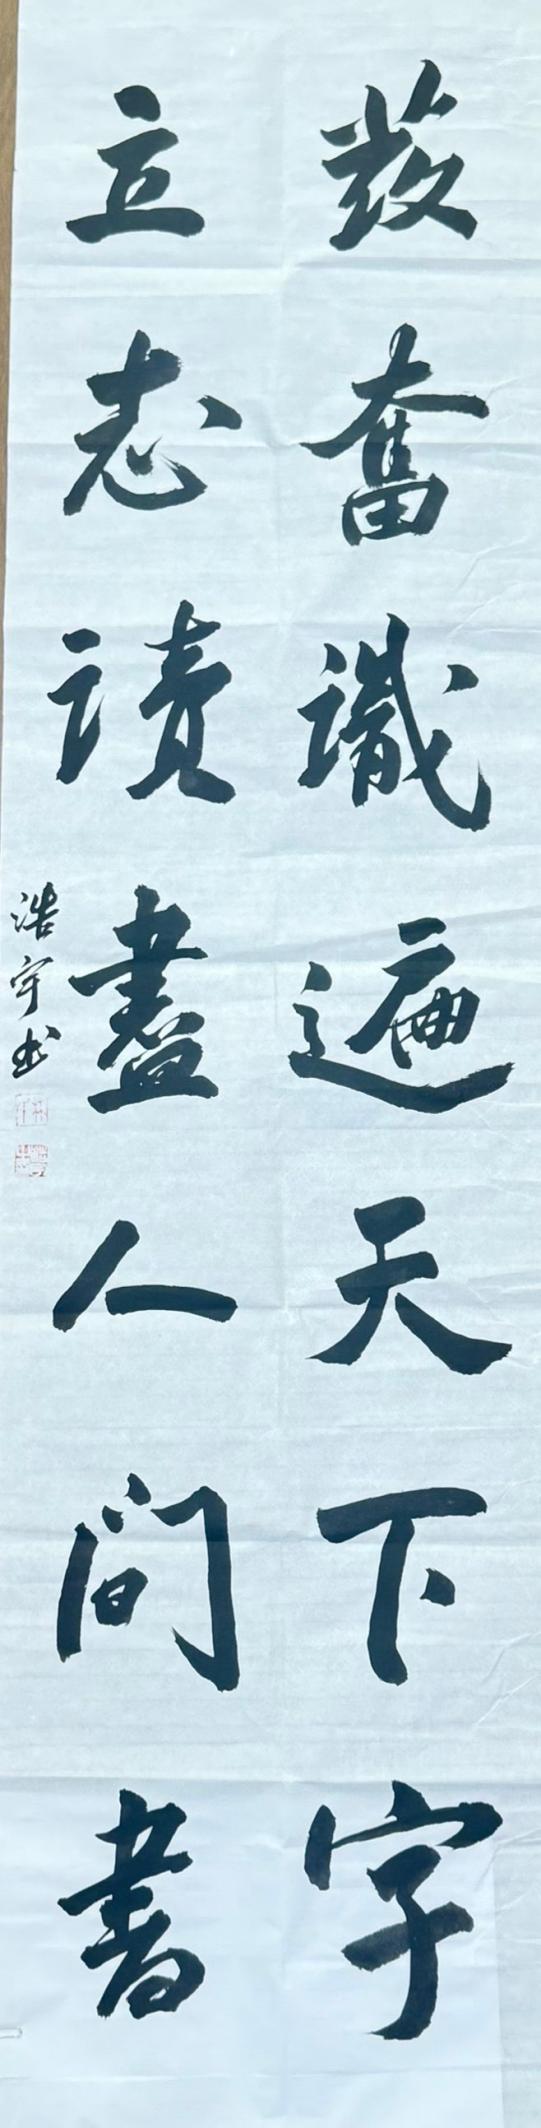 發奮識遍天下字
立志讀盡人間書
浩宇书